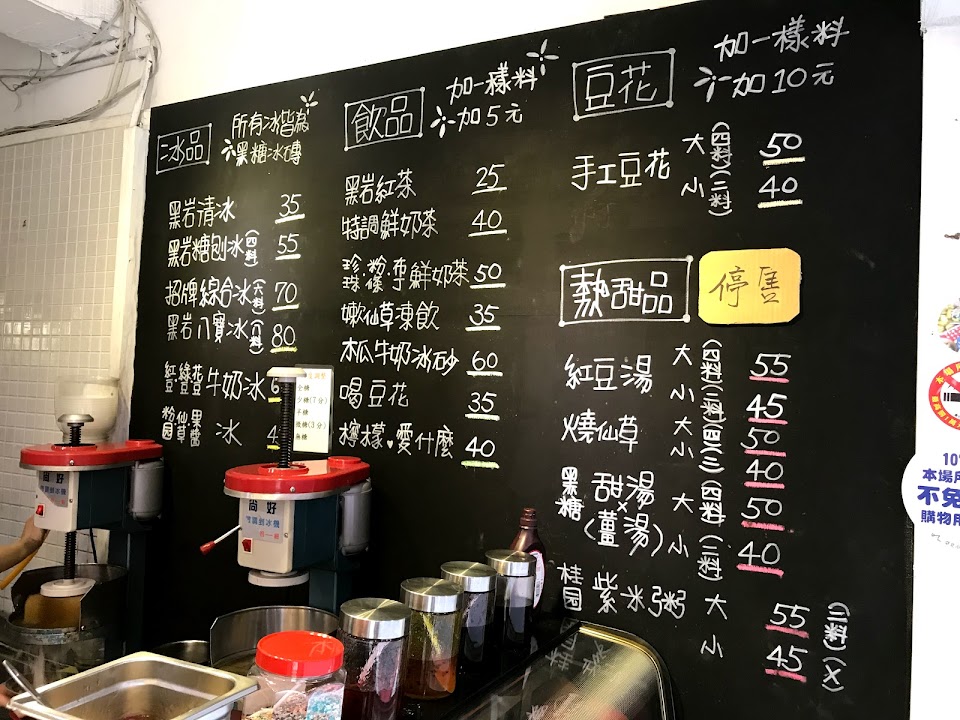 冰品
所有冰皆為
黑糖冰磚
黑岩清冰 35
黑岩糖刨冰(四料) 55
招牌綜合冰(六料) 70
黑岩八寶冰(八料) 80
紅.綠荳牛奶冰
粉園.仙草.果醬 冰
飲品
加一樣料
加5元
黑岩紅茶 25
特調鮮奶茶 40
鮮奶茶 50
嫩仙草凍飲 35
木瓜牛奶冰砂 60
喝豆花 35
檸檬♥愛什麼 40
豆花
加一樣料
加10元
手工豆花 大(四料) 50
小(二料) 40
熱甜品
停售
紅豆湯 大(四料) 55
小(二料) 45
燒仙草 大(四) 50
小(三) 40
黑糖 甜湯(薑湯) 大(四料) 50
小(二料) 40
桂圓 紫米粥 大 55
小 45
(二料)(x)
全糖
少糖(7分)
半糖
微糖(3分)
無糖
尚好
尚好
10
本場所
不免
購物用